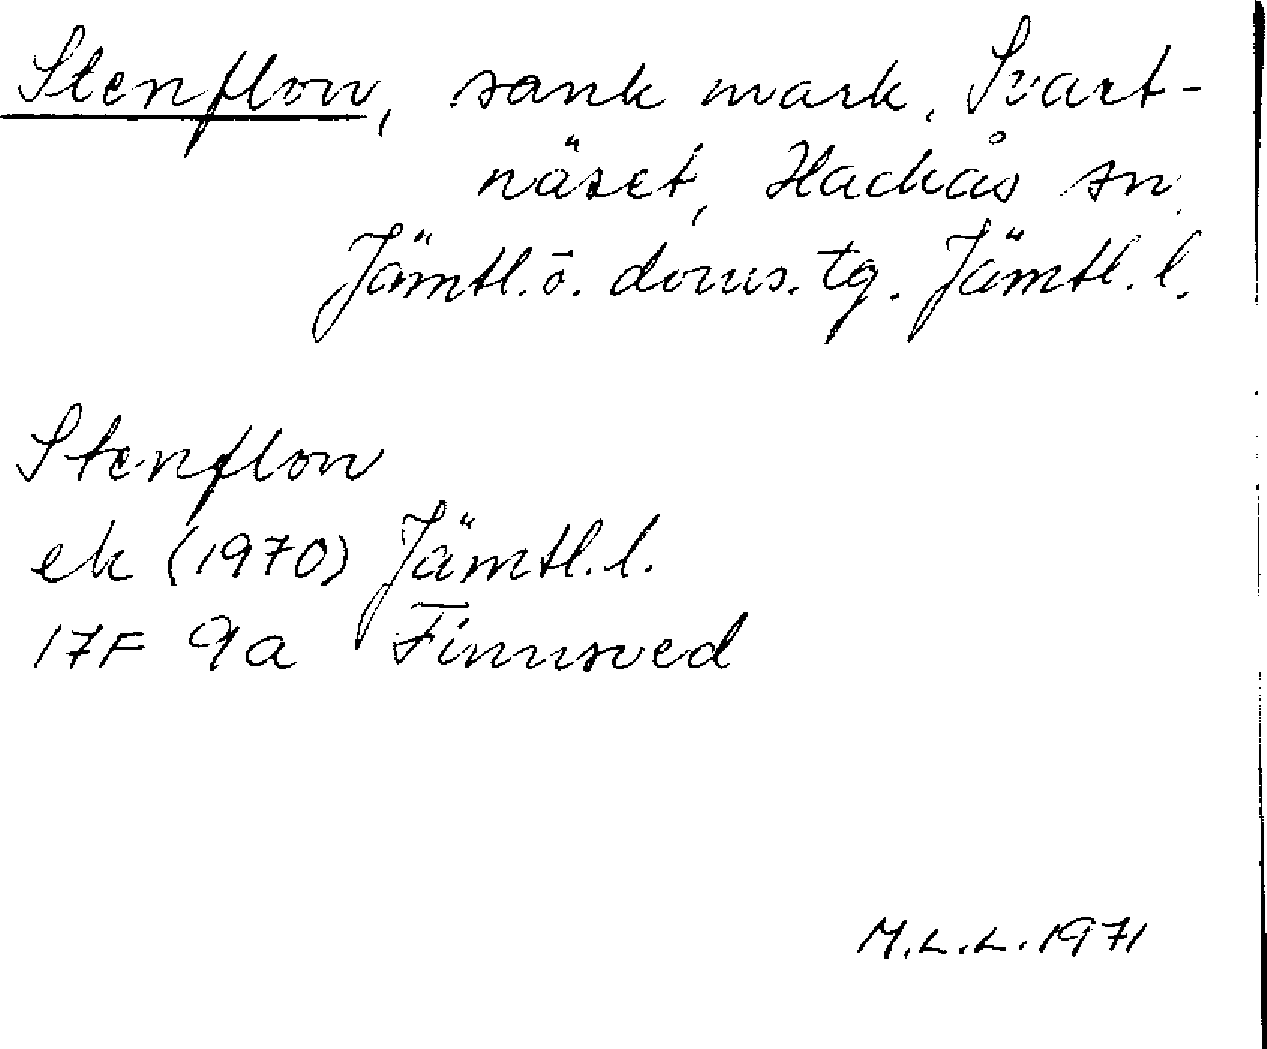 Stenflon, sank mark, Svart-
näset, Hackås sn,
Jämtl. ö. doms. tg. Jämtl. l.
Stenflon
ek (1970) Jämtl. l.
17F 9a Finnsved
M.L.L. 1971